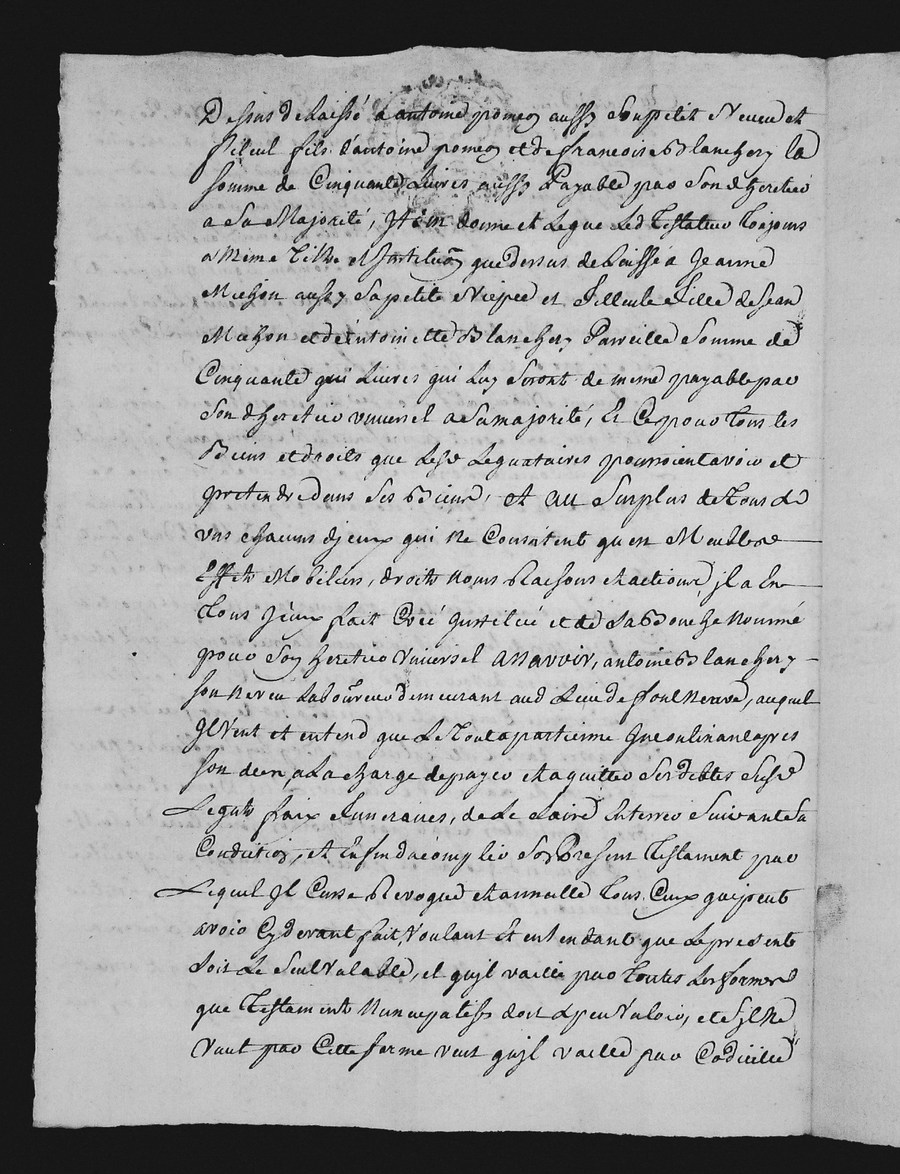 Dessus delaissé a antoine pomey aussy son petit Neveu et
filleul fils d'antoine pomey et de francoise Blanchery la
somme de Cinquante Livres aussy Payable par son heretier
a sa Majorité, Item donne et Legue Led Testateur Toujours
a Même Titre et Institution que dessus delaissé a Jeanne
Michon aussy sa petite Niepce et fillieule fille de Jean
Michon et d'Antoinette Blanchery Pareille Somme de
Cinquante Livres qui Luy seront de même payable par
son heretier universel a sa majorité, Et Ce pour Tous les
Biens et droits que Lesd Legataires pourroient avoir et
pretendre dans ses Biens, et au Surplus de Tous
uns chacuns yceux qui ne Consistent qu'en Meubles
Effets Mobiliers, droits noms Raisons et actions, jl a En
Tous yceux fait Créé Institué et de sa Bouche Nommé
pour son heretier Universel assavoir, antoine Blanchery
son neveu Laboureur demeurant aud Lieu de , auquel
Jl Veut et entend que Le Tout apartienne Incontinant apres
son deces, a La charge de payer et aquitter ses debtes susd
Legats fraix funeraires, de Le faire Enterrer Suivant sa
Condition, et Enfin d'acomplir son Present Testament par
Lequel Jl Casse Revoque et annulle Tous Ceux qu'il peut
avoir Cy devant fait, Voulant Et entendant que Le present
soit Le seul Valable, et qu'jl vaille par Toutes Les formes
que Testament Nuncupatif doit et peu Valoir, et s'jl Ne
Vaut par Cette forme veut qu'jl vaille par Codicille